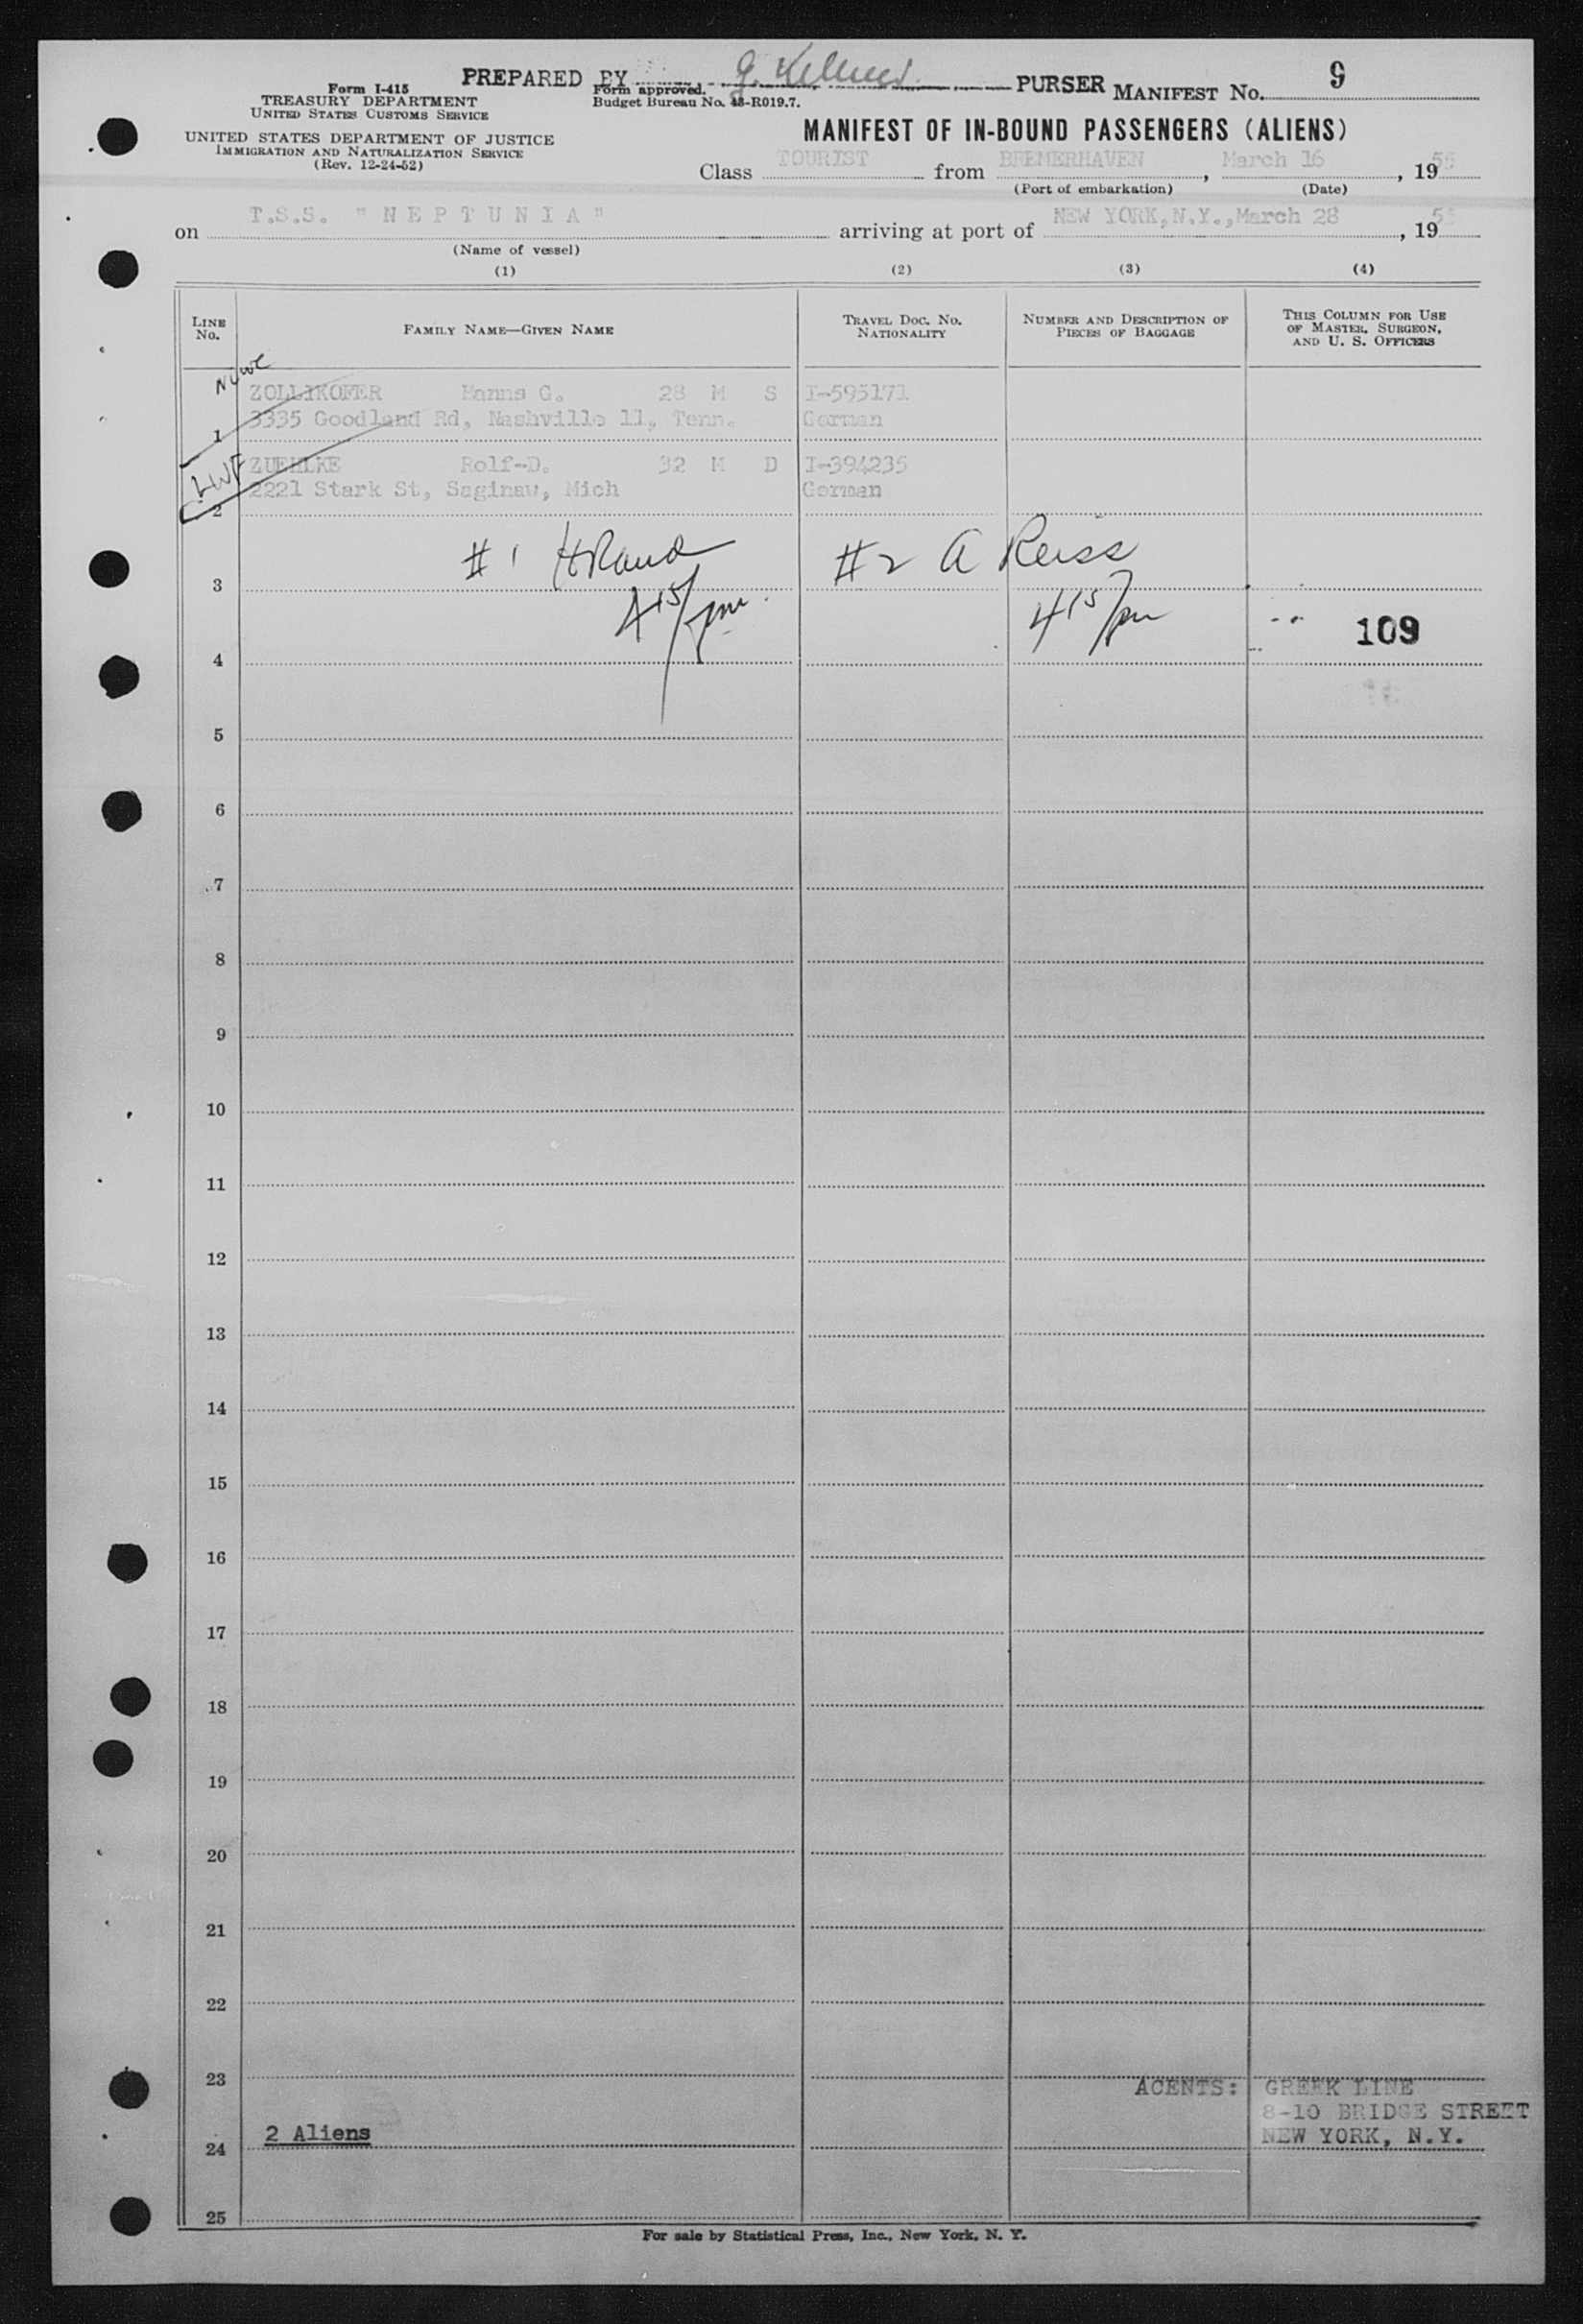 PREPARED BY PURSER MANIFEST No. 9
Form I-415
Form approved.
TREASURY DEPARTMENT
Budget Bureau No. 43-R019.7.
UNITED STATES CUSTOMS SERVICE
UNITED STATES DEPARTMENT OF JUSTICE
IMMIGRATION AND NATURALIZATION SERVICE
(Rev. 12-24-52)
MANIFEST OF IN-BOUND PASSENGERS (ALIENS)
Class TOURIST from BREMERHAVEN, March 16, 1955
(Port of embarkation) (Date)
on T.S.S. "NEPTUNIA" arriving at port of NEW YORK, N.Y., March 28, 195
(Name of vessel)
(1) (2) (3) (4)
LINE No. FAMILY NAME—GIVEN NAME TRAVEL DOC. No. NATIONALITY NUMBER AND DESCRIPTION OF PIECES OF BAGGAGE THIS COLUMN FOR USE OF MASTER, SURGEON, AND U. S. OFFICERS
ZOLLIKOFER Hanns G. 28 M S I-595171
1 3335 Goodland Rd, Nashville 11, Tenn. German
ZUEHLKE Rolf-D. 32 M D I-394235
2 2221 Stark St, Saginaw, Mich German
3 #1 #2 A Reiss
4 4 15/pm 4 15/pm 109
5
6
7
8
9
10
11
12
13
14
15
16
17
18
19
20
21
22
23
AGENTS: GREEK LINE
8-10 BRIDGE STREET
24 2 Aliens NEW YORK, N.Y.
25
For sale by Statistical Press, Inc., New York, N. Y.